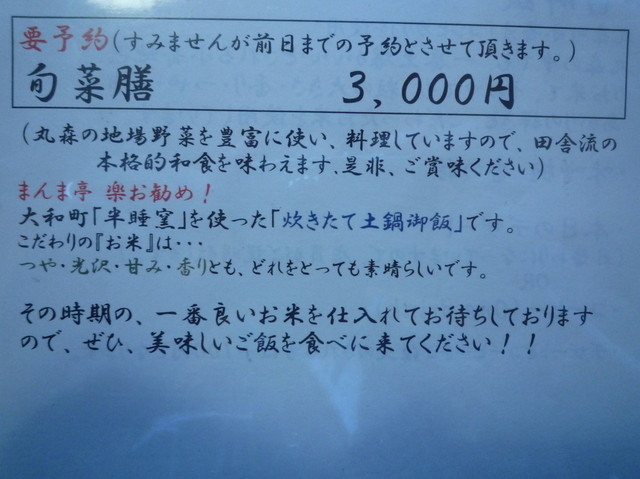 要予約(すみませんが前日までの予約とさせて頂きます。)
旬菜膳 3,000円
(丸森の地場野菜を豊富に使い、料理していますので、田舎流の
本格的和食を味わえます、是非、ご賞味ください)
まんま亭 楽お勧め!
大和町「半睡窯」を使った「炊きたて土鍋御飯」です。
こだわりの『お米』は・・・
つや・光沢・甘み・香りとも、どれをとっても素晴らしいです。
その時期の、一番良いお米を仕入れてお待ちしております
ので、ぜひ、美味しいご飯を食べに来てください!!